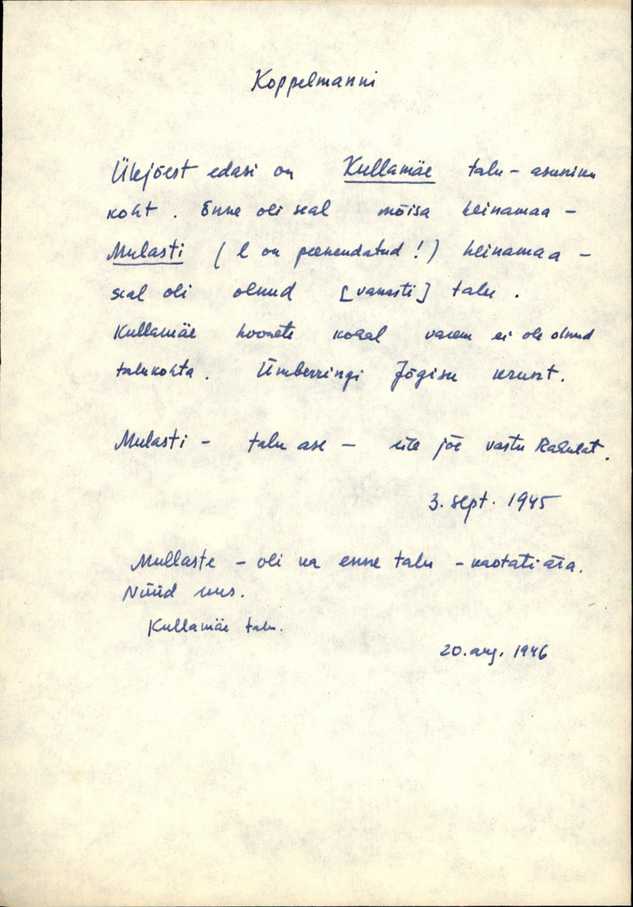 Koppelmanni
Ülejõest edasi on Kullamäe talu - asuniku
koht. Enne oli seal mõisa heinamaa -
Mulasti (l on peenendatud!) heinamaa -
seal oli olnud [vanasti] talu.
Kullamäe hoonete kohal varem ei ole olnud
talukohta. Ümberringi Jõgisu krunt.
Mulasti - talu ase - üle jõe vastu
3. sept. 1945
Mullaste - oli ka enne talu - kaotati ära.
Nüüd uus.
Kullamäe talu.
20. aug. 1946